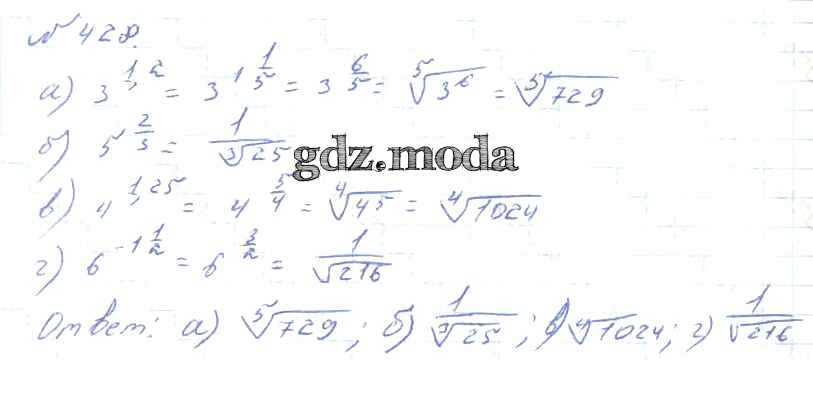 № 428.
а) 3^{1,2} = 3^{1 1/5} = 3^{6/5} = ⁵√3⁶ = ⁵√729
б) 5^{2/3} = 1/³√25
gdz.moda
в) 4^{1,25} = 4^{5/4} = ⁴√4⁵ = ⁴√1024
г) 6^{-1 1/2} = 6^{3/2} = 1/√216
Ответ: а) ⁵√729; б) 1/³√25; в) ⁴√1024; г) 1/√216